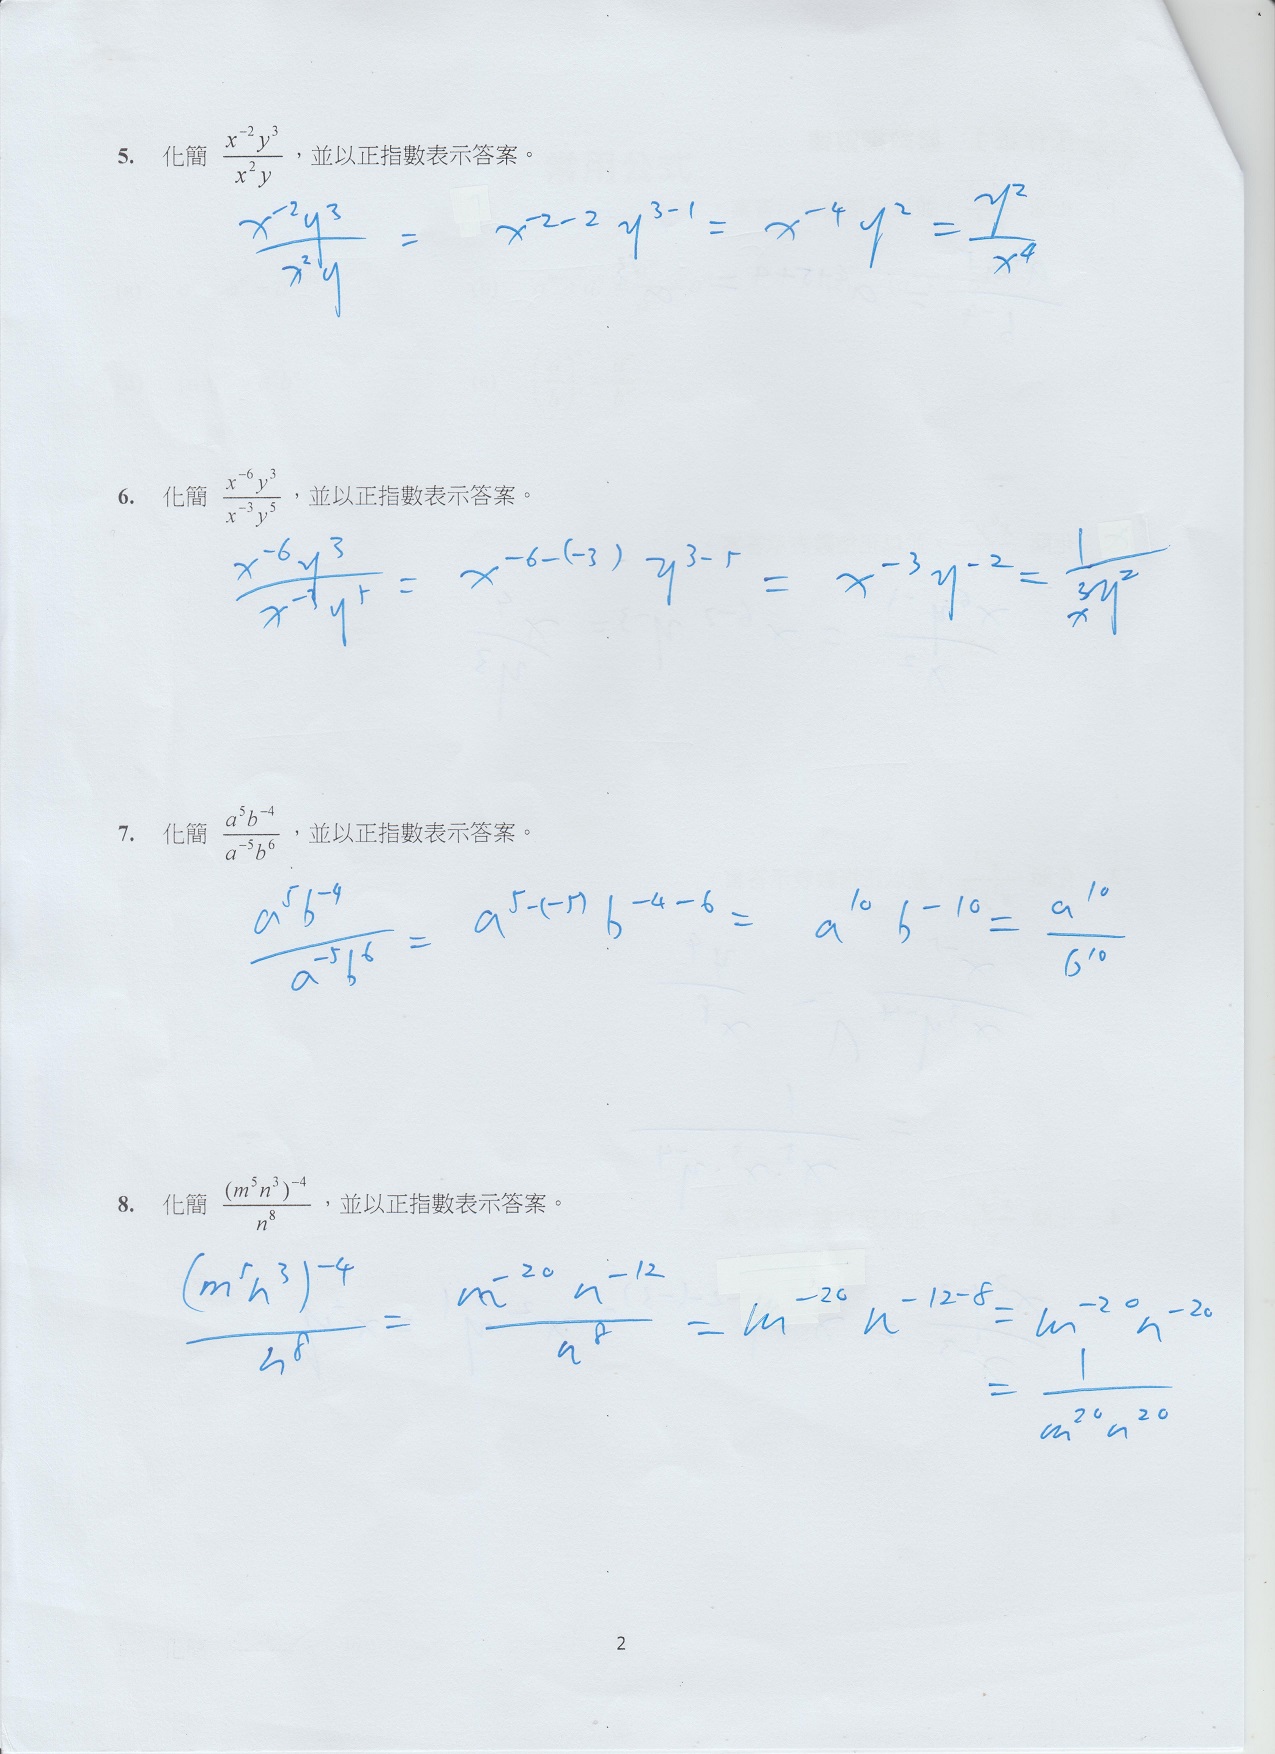 5. 化簡 \frac{x^{-2}y^{3}}{x^{2}y}，並以正指數表示答案。
\frac{x^{-2}y^{3}}{x^{2}y} = x^{-2-2} y^{3-1} = x^{-4} y^{2} = \frac{y^{2}}{x^{4}}
6. 化簡 \frac{x^{-6}y^{3}}{x^{-3}y^{5}}，並以正指數表示答案。
\frac{x^{-6}y^{3}}{x^{-3}y^{5}} = x^{-6-(-3)} y^{3-5} = x^{-3} y^{-2} = \frac{1}{x^{3}y^{2}}
7. 化簡 \frac{a^{5}b^{-4}}{a^{-5}b^{6}}，並以正指數表示答案。
\frac{a^{5}b^{-4}}{a^{-5}b^{6}} = a^{5-(-5)} b^{-4-6} = a^{10} b^{-10} = \frac{a^{10}}{b^{10}}
8. 化簡 \frac{(m^{5}n^{3})^{-4}}{n^{8}}，並以正指數表示答案。
\frac{(m^{5}n^{3})^{-4}}{n^{8}} = \frac{m^{-20} n^{-12}}{n^{8}} = m^{-20} n^{-12-8} = m^{-20} n^{-20}
= \frac{1}{m^{20}n^{20}}
2